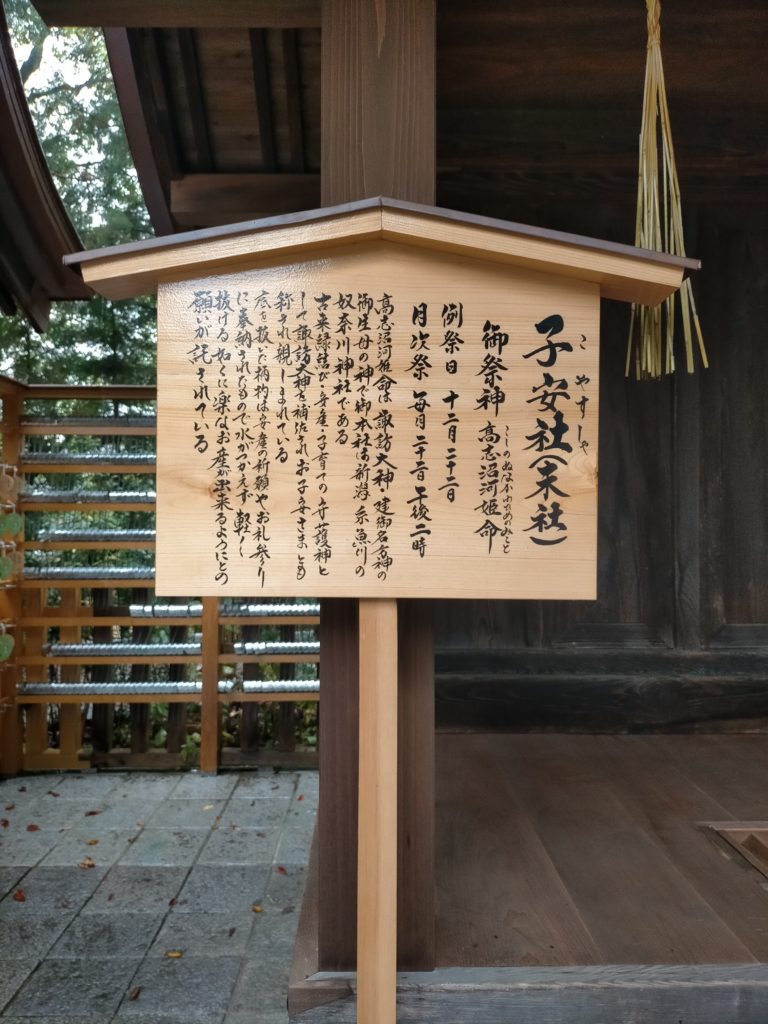 こやすしゃ
子安社（末社）
御祭神 高志沼河姫命
こしのぬなかわひめのみこと
例祭日 十二月二十二日
月次祭 毎月二十二日 午後二時
高志沼河姫命は諏訪大神 建御名方神の
御生母の神で御本社は新潟 糸魚川の
奴奈川神社である
古来縁結び・安産・子育ての守護神と
して諏訪大神を補佐されお子安さまとも
称され親しまれている
底を抜いた柄杓は安産の祈願やお礼参り
に奉納されたもので水がつかえず軽く
抜ける如くに楽なお産が出来るようにとの
願いが託されている